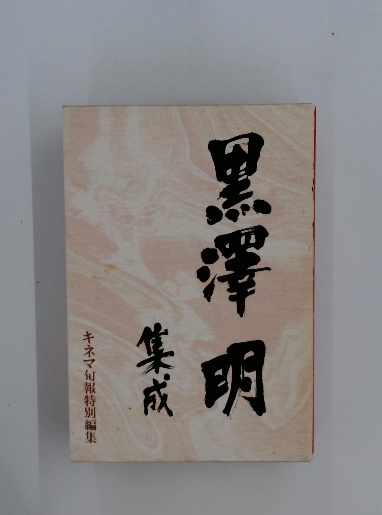 黒澤明
集成
キネマ旬報特別編集